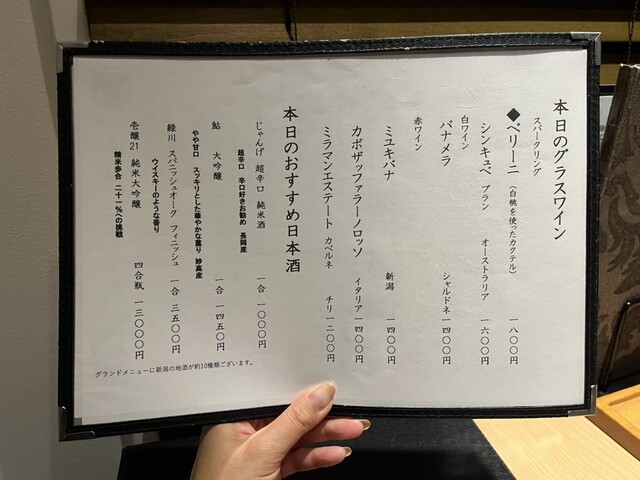 本日のグラスワイン
スパークリング
◆ベリーニ （白桃を使ったカクテル） 一八〇〇円
シンキュベ ブラン オーストラリア 一六〇〇円
白ワイン
パナメラ シャルドネ 一四〇〇円
赤ワイン
ミユキバナ 新潟 一四〇〇円
カボザッファラーノロッソ イタリア 一四〇〇円
ミラマンエステート カベルネ チリ 一二〇〇円
本日のおすすめ日本酒
じゃんげ 超辛口 純米酒 一合 一〇〇〇円
超辛口 辛口好きお勧め 長岡産
鮎 大吟醸 一合 一四五〇円
やや甘口 スッキリとした華やかな薫り 妙高産
緑川 スパニッシュオーク フィニッシュ 一合 三五〇〇円
ウイスキーのような香り
壱醸21 純米大吟醸 四合瓶 一三〇〇〇円
精米歩合 二十一%への挑戦
グランドメニューに新潟の地酒が約10種類ございます。